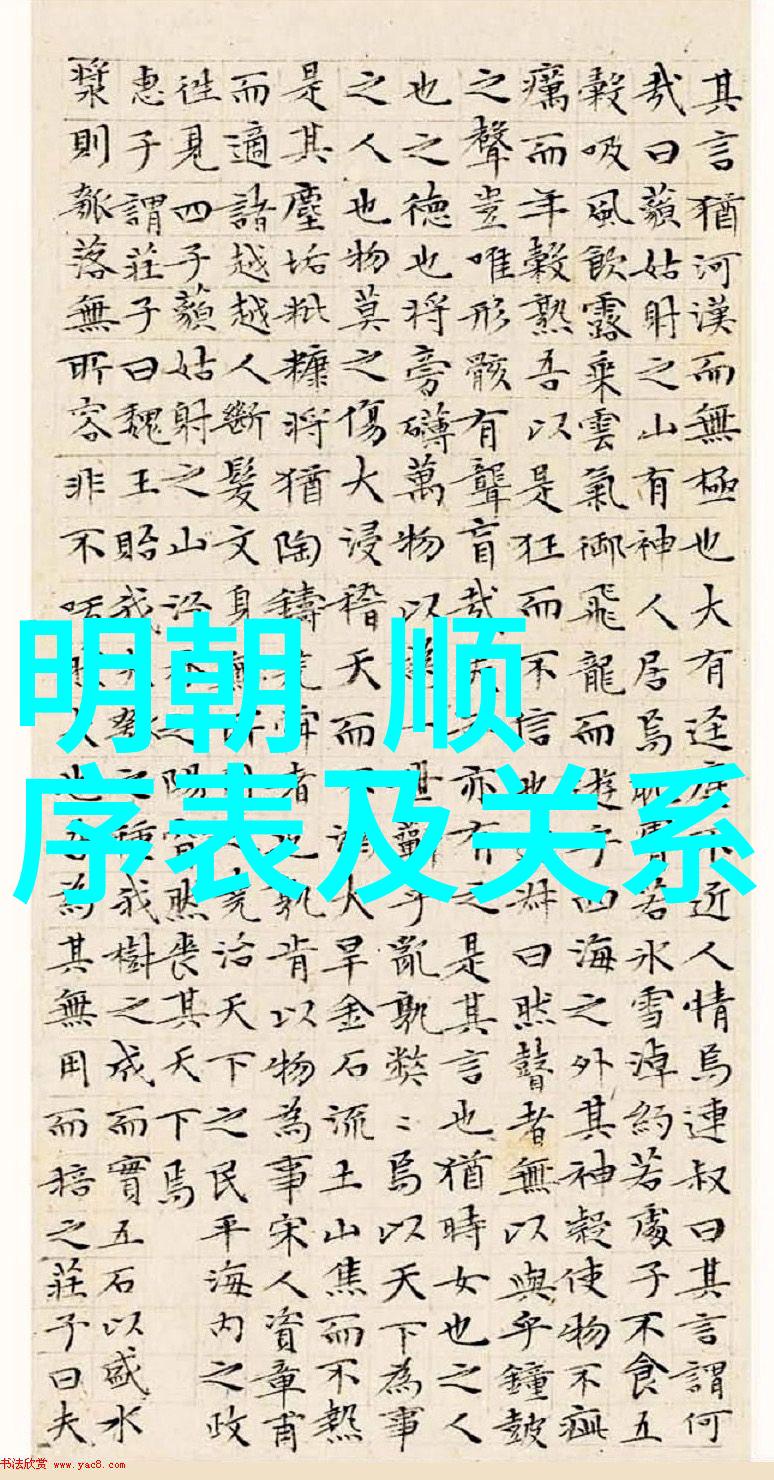 其言猶河漢而無極也大有逕不近人情焉連叔曰其言謂何
哉曰藐姑射之山有神人居焉若冰雪淖約若處子不食五
穀吸風飲露乘雲氣御飛龍而遊乎四海之外其神凝使物不疵
癘而年穀熟吾以是狂而不信也叔曰然瞽者無以與乎鐘皷
之聲豈唯形骸有聾盲哉亦有之是其言也猶時女也之人
也之德也將旁礴萬物以一世蘄乎亂孰弊〻焉以天下為事
之人也物莫之傷大浸稽天而不大旱金石流土山焦而不熱
是其塵垢粃糠將猶陶鑄堯舜者也孰肯以物為事宋人資章甫
而適諸越越人斷髮文身無所堯治天下之民平海内之政
往見四子藐姑射之山汾之陽窅然喪其天下焉
惠子謂莊子曰魏王貽我之種我樹之成而實五石以盛水
漿則瓠落無所容非不呺大也為其無用而掊之莊子曰夫
明朝 顺
序表及关系
书法欣赏 www.yac8.com